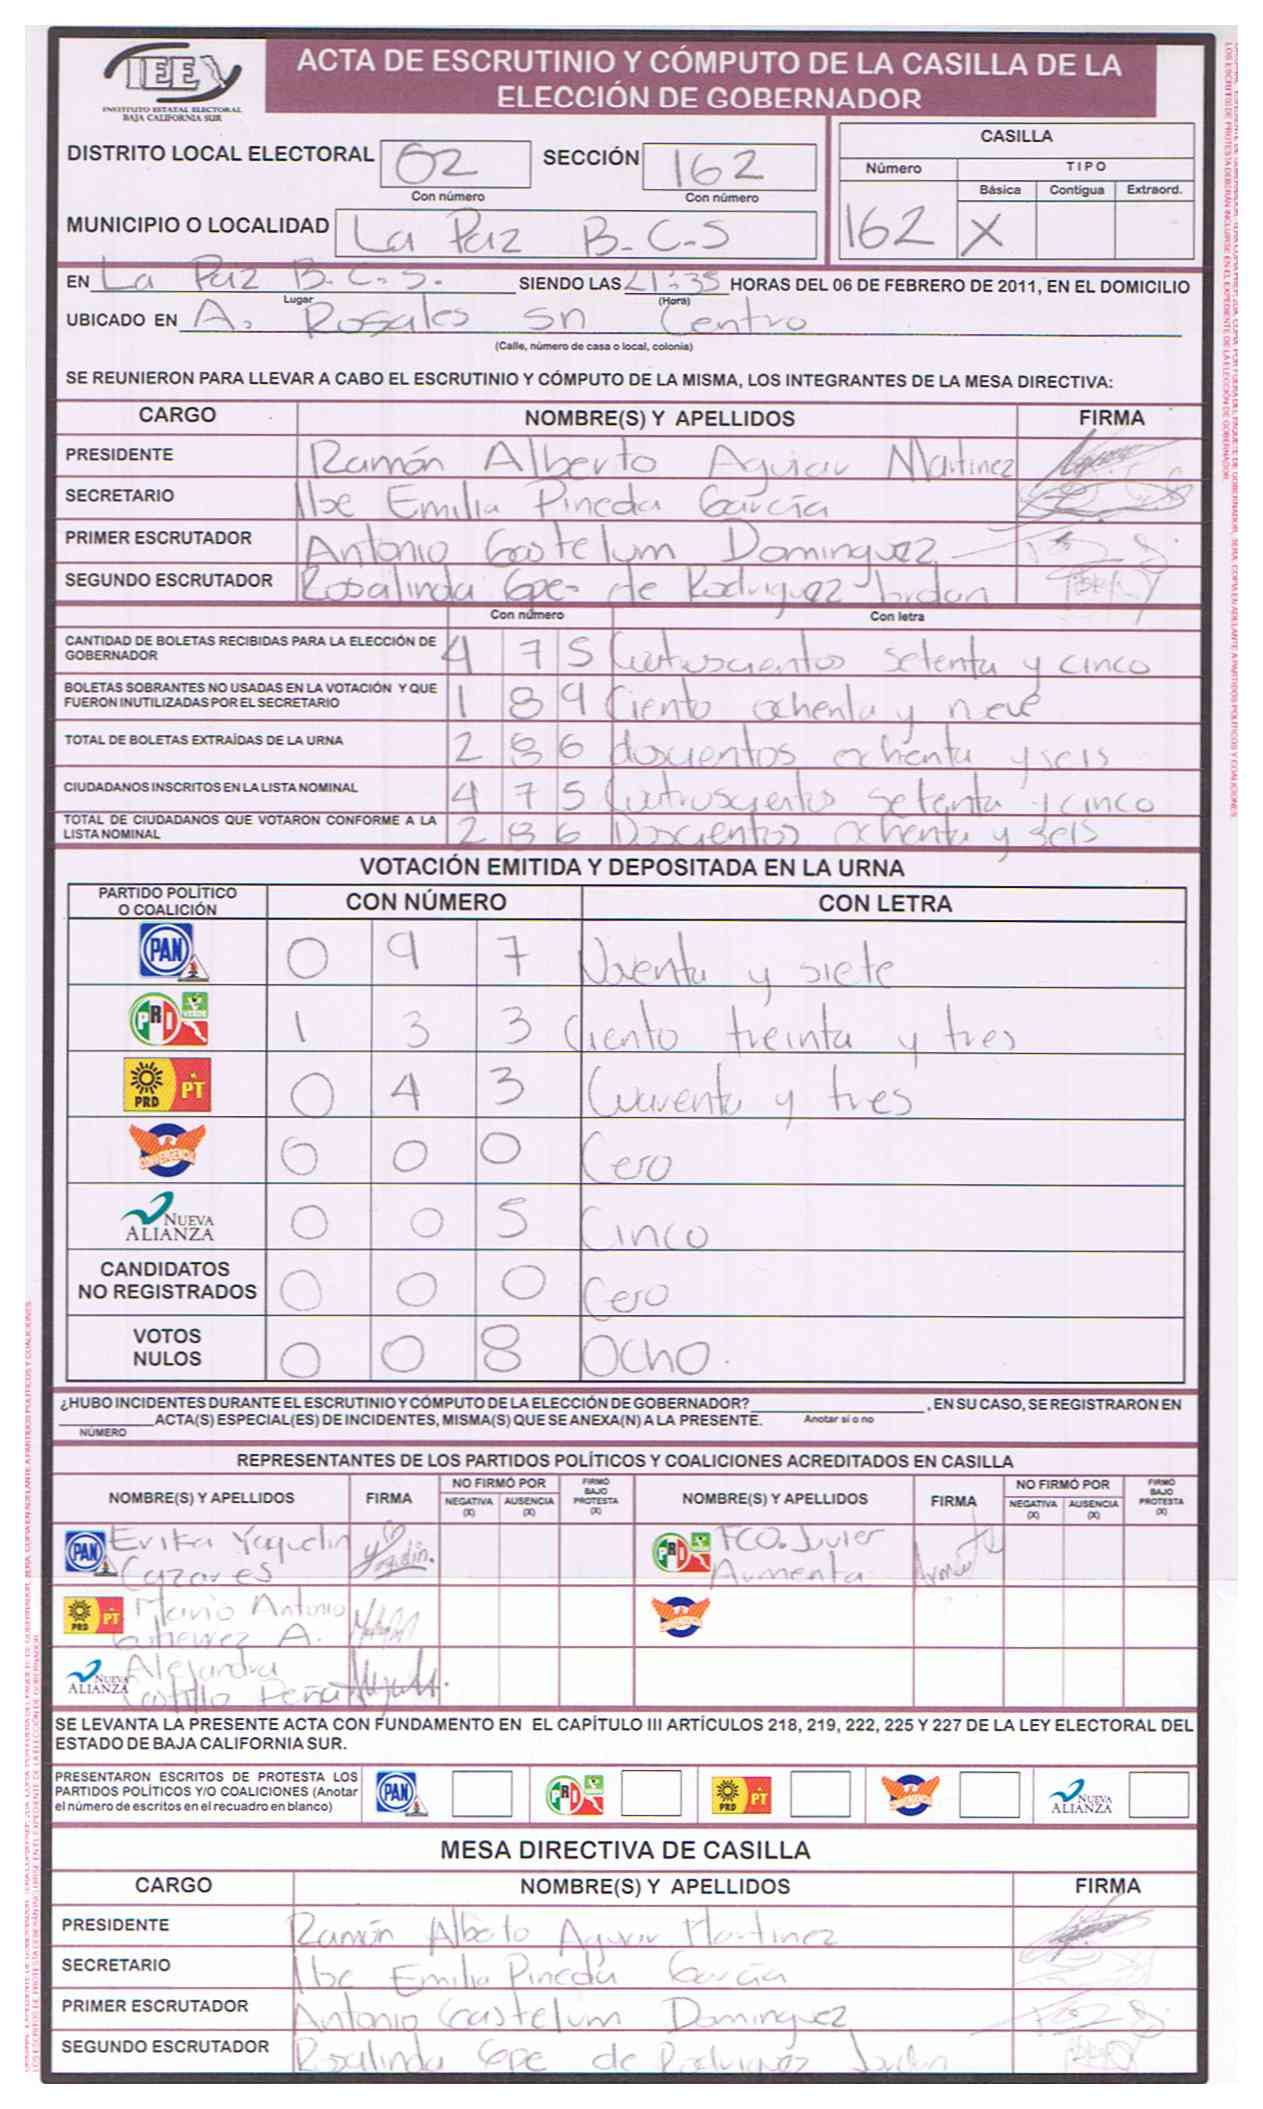 IEEX
INSTITUTO ESTATAL ELECTORAL
BAJA CALIFORNIA SUR
ACTA DE ESCRUTINIO Y CÓMPUTO DE LA CASILLA DE LA
ELECCIÓN DE GOBERNADOR
DISTRITO LOCAL ELECTORAL 02 SECCIÓN 162
Con número Con número
MUNICIPIO O LOCALIDAD La Paz B.C.S
CASILLA
Número TIPO
Básica Contigua Extraord.
162 X
EN La Paz B.C.S. SIENDO LAS 21:35 HORAS DEL 06 DE FEBRERO DE 2011, EN EL DOMICILIO
Lugar (Hora)
UBICADO EN A. Rosales sn Centro
(Calle, número de casa o local, colonia)
SE REUNIERON PARA LLEVAR A CABO EL ESCRUTINIO Y CÓMPUTO DE LA MISMA, LOS INTEGRANTES DE LA MESA DIRECTIVA:
CARGO NOMBRE(S) Y APELLIDOS FIRMA
PRESIDENTE Ramón Alberto Aguiar Martinez
SECRETARIO Ilse Emilia Pineda García
PRIMER ESCRUTADOR Antonio Gastelum Dominguez
SEGUNDO ESCRUTADOR Rosalinda Gpe de Rodriguez Jordan
Con número Con letra
CANTIDAD DE BOLETAS RECIBIDAS PARA LA ELECCIÓN DE
GOBERNADOR 4 7 5 Cuatroscientos setenta y cinco
BOLETAS SOBRANTES NO USADAS EN LA VOTACIÓN Y QUE
FUERON INUTILIZADAS POR EL SECRETARIO 1 8 9 Ciento ochenta y nueve
TOTAL DE BOLETAS EXTRAÍDAS DE LA URNA 2 8 6 doscientos ochenta y seis
CIUDADANOS INSCRITOS EN LA LISTA NOMINAL 4 7 5 Cuatroscientos setenta y cinco
TOTAL DE CIUDADANOS QUE VOTARON CONFORME A LA
LISTA NOMINAL 2 8 6 Doscientos ochenta y seis
VOTACIÓN EMITIDA Y DEPOSITADA EN LA URNA
PARTIDO POLÍTICO
O COALICIÓN CON NÚMERO CON LETRA
PAN 0 9 7 Noventa y siete
PRI VERDE 1 3 3 Ciento treinta y tres
PRD PT 0 4 3 Cuarenta y tres
CONVERGENCIA 0 0 0 Cero
NUEVA ALIANZA 0 0 5 Cinco
CANDIDATOS
NO REGISTRADOS 0 0 0 Cero
VOTOS
NULOS 0 0 8 Ocho.
¿HUBO INCIDENTES DURANTE EL ESCRUTINIO Y CÓMPUTO DE LA ELECCIÓN DE GOBERNADOR? , EN SU CASO, SE REGISTRARON EN
ACTA(S) ESPECIAL(ES) DE INCIDENTES, MISMA(S) QUE SE ANEXA(N) A LA PRESENTE. Anotar sí o no
NÚMERO
REPRESENTANTES DE LOS PARTIDOS POLÍTICOS Y COALICIONES ACREDITADOS EN CASILLA
NOMBRE(S) Y APELLIDOS FIRMA NO FIRMÓ POR NEGATIVA (X) AUSENCIA (X) FIRMÓ BAJO PROTESTA (X) NOMBRE(S) Y APELLIDOS FIRMA NO FIRMÓ POR NEGATIVA (X) AUSENCIA (X) FIRMÓ BAJO PROTESTA (X)
PAN Erika Yaquelin PRI FCO. Javier
Cazares Armenta
PRD PT Mario Antonio CONVERGENCIA
Gutierrez A.
NUEVA ALIANZA Alejandra
Castillo Peña
SE LEVANTA LA PRESENTE ACTA CON FUNDAMENTO EN EL CAPÍTULO III ARTÍCULOS 218, 219, 222, 225 Y 227 DE LA LEY ELECTORAL DEL
ESTADO DE BAJA CALIFORNIA SUR.
PRESENTARON ESCRITOS DE PROTESTA LOS
PARTIDOS POLÍTICOS Y/O COALICIONES (Anotar
el número de escritos en el recuadro en blanco) PAN PRI PRD PT CONVERGENCIA NUEVA ALIANZA
MESA DIRECTIVA DE CASILLA
CARGO NOMBRE(S) Y APELLIDOS FIRMA
PRESIDENTE Ramón Alberto Aguiar Martinez
SECRETARIO Ilse Emilia Pineda García
PRIMER ESCRUTADOR Antonio Gastelum Dominguez
SEGUNDO ESCRUTADOR Rosalinda Gpe de Rodriguez Jordan